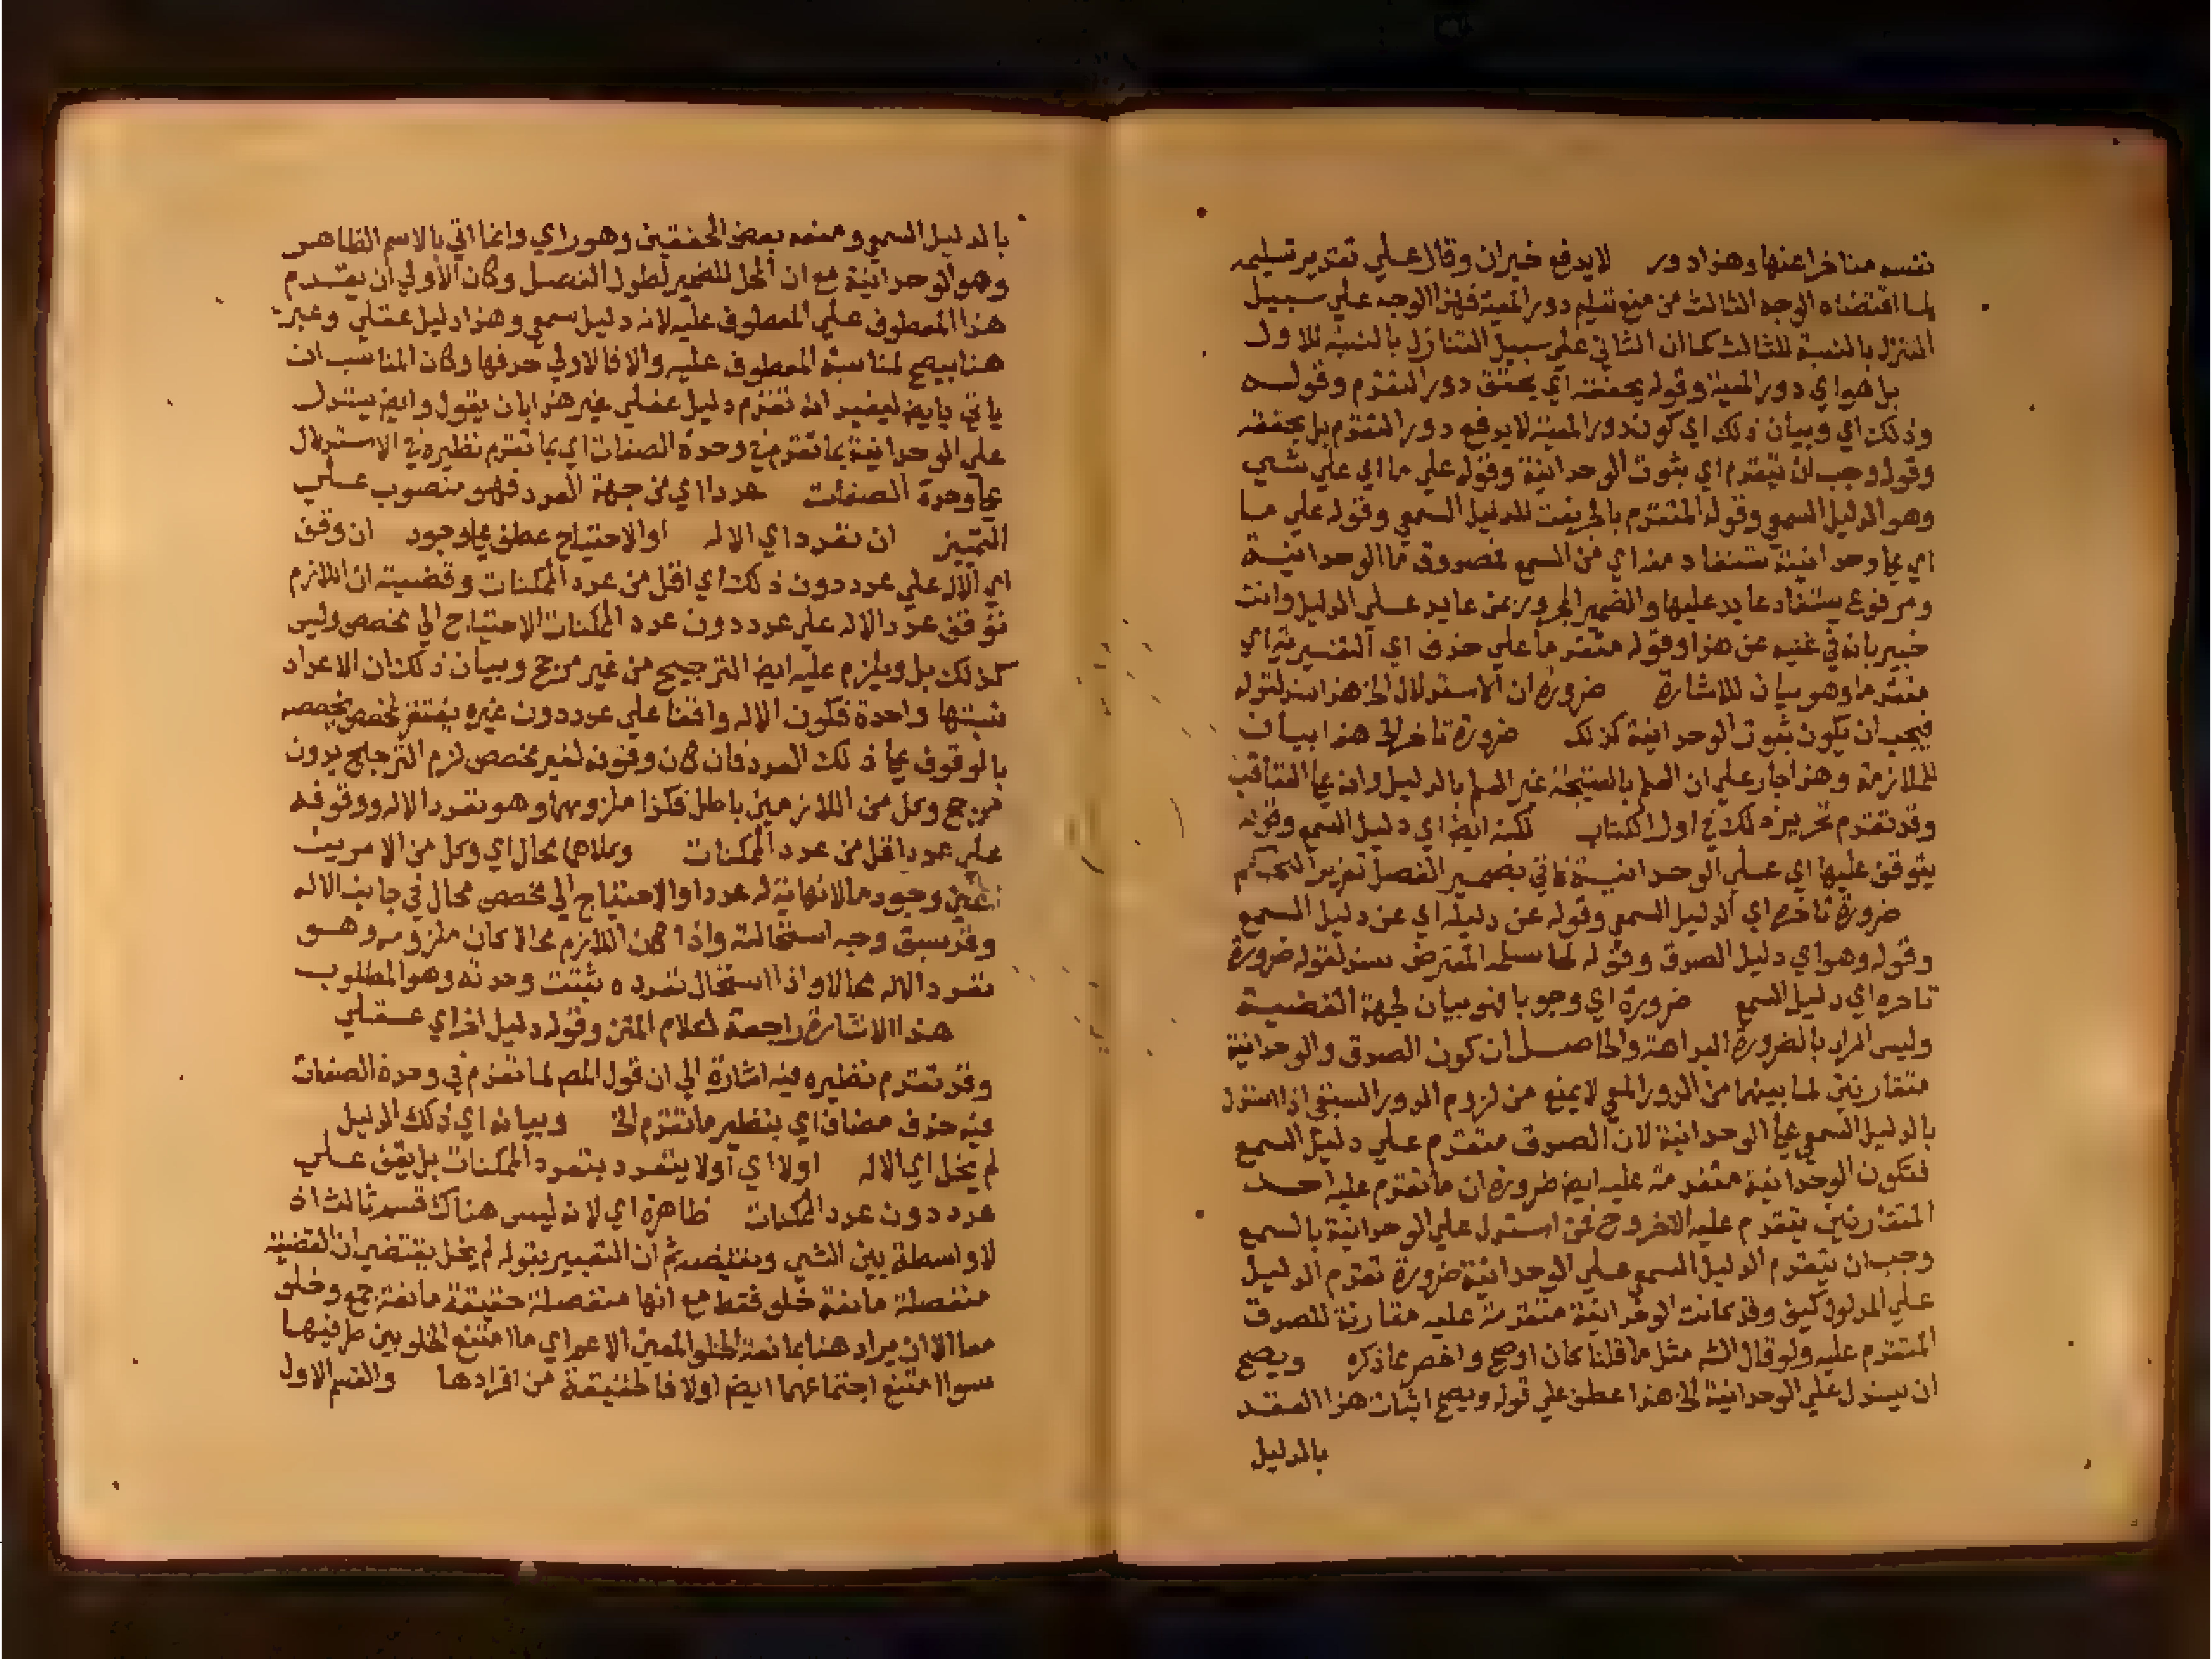 نفسه متاخرا عنها وهذا دور لا يدفع خيران وقال علي تقدير تسليمه
لما اقتضاه الوجه الثالث من منع تسليم دور المعية فهذا الوجه علي سبيل
التنزل بالنسبة للثالث كما ان الثاني علي سبيل التنازل بالنسبة للاول
بل هو اي دور المعية وقوله يحققه اي يحقق دور التقدم وقوله
وذلك اي وبيان ذلك اي كون دور المعية لا يدفع دور التقدم بل يحققه
وقوله وجب ان يتقدم اي ثبوت الوحدانية وقوله علي ما اي علي شي
وهو الدليل السمعي وقوله المتقدم بالجر نعت للدليل السمعي وقوله علي ما
اي علي وحدانية تستفاد منه اي من السمع فمصدوق ما الوحدانية
ومرفوع يستفاد عايد عليها والضمير المجرور بمن عايد علي الدليل وانت
خبير بانه في غنيه عن هذا وقوله متقدما علي حذف اي التفسيرية اي
متقدما وهو بيان للاشارة ضرورة ان الاستدلال الخ هذا سند لقوله
فيجب ان يكون ثبوت الوحدانية كذلك ضرورة تاخر الخ هذا بيان
للملازمة وهذا جار علي ان العلم بالنتيجة غير العلم بالدليل وانه علي التعاقب
وقد تقدم تحرير ذلك في اول الكتاب لكنه ايضا اي دليل السمع وقوله
يتوقف عليها اي علي الوحدانية فاتي بضمير الفصل تعزيرا للحكم
ضرورة تاخره اي الدليل السمعي وقوله عن دليله اي عن دليل السمع
وقوله وهو اي دليل الصدق وقوله لما سلمه المعترض سند لقوله ضرورة
تاخره اي دليل السمع ضرورة اي وجوبا فهو بيان لجهة القضية
وليس المراد بالضرورة البداهة والحاصل ان كون الصدق والوحدانية
متقارنين لما بينهما من الدور المعي لا يمنع من لزوم الدور السبقي اذا استدل
بالدليل السمعي علي الوحدانية لان الصدق متقدم علي دليل السمع
فتكون الوحدانية متقدمة عليه ايضا ضرورة ان ما تقدم عليه احد
المتقارنين يتقدم عليه الاخر وح فمن استدل علي الوحدانية بالسمع
وجب ان يتقدم الدليل السمع علي الوحدانية ضرورة تقدم الدليل
علي المدلول كيف وقد كانت الوحدانية متقدمة عليه مقارنة للصدق
المتقدم عليه ولو قال الشه مثل ما قلنا كان اوضح واخصر مما ذكره ويصح
ان يستدل علي الوحدانية الخ هذا عطف علي قوله ويصح اثبات هذا العقد
بالدليل
بالدليل السمعي ومنعه بعض المحققين وهو راي وانما اتي بالاسم الظاهر
وهو الوحدانية مع ان المحل للضمير لطول الفصل وكان الاولي ان يقدم
هذا المعطوف علي المعطوف عليه لانه دليل سمعي وهذا دليل عقلي وعبر
هنا بيصح لمناسبة المعطوف عليه والا فالاولي حذفها وكان المناسب ان
ياتي بايض ليفيد انه تقدم دليل عقلي غير هذا بان يقول وايض يستدل
علي الوحدانية بما تقدم في وحدة الصفات اي بما تقدم نظيره في الاستدلال
علي وحدة الصفات عددا اي من جهة العدد فهو منصوب علي
التمييز ان تعدد اي الاله او الاحتياج عطف علي وجود ان وقف
اي الاله علي عدد دون ذلك اي اقل من عدد الممكنات وقضيته ان اللازم
توقف عدد الاله علي عدد دون عدد الممكنات الاحتياج الي مخصص وليس
كذلك بل ويلزم عليه ايض الترجيح من غير مرجح وبيان ذلك ان الاعداد
نسبتها واحدة فكون الاله واقفا علي عدد دون غيره يفتقر لمخصص يخصصه
بالوقوف علي ذلك العدد فان كان وقوفه لغير مخصص لزم الترجيح بدون
مرجح وكل من اللازمين باطل فكذا ملزومهما وهو تعدد الاله ووقوفه
علي عدد اقل من عدد الممكنات وكلاهما محال اي وكل من الامرين
اعني وجود ما لا نهاية له عددا والاحتياج الي مخصص محال في جانب الاله
وقد سبق وجه استحالته واذا كان اللازم محالا كان ملزومه وهو
تعدد الاله محالا واذا استحال تعدده ثبتت وحدته وهو المطلوب
هذا الاشارة راجعة لكلام المتن وقوله دليل اخر اي عقلي
وقد تقدم نظيره فيه اشارة الي ان قول المص لما تقدم في وحدة الصفات
فيه حذف مضاف اي بنظير ما تقدم الخ وبيانه اي ذلك الدليل
لم يخل اي الاله اولا اي اولا يتعدد بتعدد الممكنات بل يقف علي
عدد دون عدد الممكنات ظاهرة اي لانه ليس هناك قسم ثالث اذ
لا واسطة بين الشي ونقيضه ثم ان التعبير بقوله لم يخل يقتضي ان القضية
منفصلة مانعة خلو فقط مع انها منفصلة حقيقة مانعة جمع وخلو
معا الا ان يراد هنا بمانعة الخلو المعني الاعم اي ما امتنع الخلو بين طرفيها
سوا امتنع اجتماعهما ايضا اولا فالحقيقة من افرادها والقسم الاول